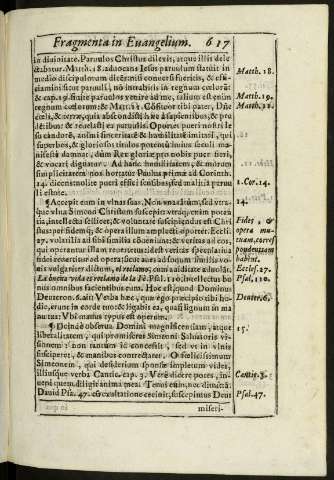 Fragmenta in Euangelium. 617
in diuinitate. Paruulos Christus dilexit, atque illis dele
ctabatur. Matth. 18. aduocans Iesus paruulum statuit in
medio discipulorum dicens: nisi conuersi fueritis, & effi
ciamini sicut paruuli, nõ intrabitis in regnum cœlorũ:
& cap. 19. sinite paruulos venire ad me, talium est enim
regnum cœlorum: & Matt. 11. Cõfiteor tibi pater, Dñe
cœli, & terræ, quia abscondisti hæc à sapientibus, & pru
dētibus & reuelasti ea paruulis. Oportet pueri nostri Ie
su candorē, animi synceritatē & humilitatē imitari, qui
superbos, & gloriosos titulos potentū huius sæculi
manifestè damnat, dum Rex gloriæ pro nobis puer fieri,
& vocari dignatur. Ad hanc humilitatem, & miram
simplicitatem nos hortatur Paulus prima ad Corinth.
14. dicens: nolite pueri effici sensibus, sed malitia paruu
li estote.
¶ Accepit eum in vlnas suas. Non vna dūtaxat, sed vtra-
que vlna Simeon Christum
& operibus illum amplecti oportet. Eccli.
27. volatilia ad sibi similia conueniunt: & veritas ad eos,
qui operantur illam reuertetur
fidei reuertitur ad opera; sicut aues similes
La buena vida es reclamo de la Fè. Psal. 110 intellectus bo
nus omnibus facientibus eum. Hoc est, quod Dominus
Deuteron. 6. ait: Verba hæc, quæ ego præcipio tibi ho-
die, erunt in corde tuo: & ligabis ea, quasi signum in ma
nu tua: Vbi manus typus est operum.
¶ Deinde obserua Domini magnificentiam, atque
liberalitatem, qui promiserat Simeoni Saluatoris vi
sionem: non tantum id concessit, sed vt in vlnis
susciperet, & manibus contrectaret. O felicissimum
Simeonem, qui desiderium sponsæ impletum videt,
illiusque verba Cantic. cap. 3. Verè dicere potes, in-
ueni quem diligit anima mea: Tenui eum, nec dimittā:
Dauid Psa. 47. cū exultatione cecinit, suscepimus Deus
miseri-
Matth. 18.
Matth. 19.
Matth. 11.
1. Cor. 14.
14.
Fides, &
opera mu-
tuam, corres
pondentiam
habent.
Ecclef. 27.
Psal. 110.
Deuter. 6.
15.
Cantic. 3.
Psal. 47.